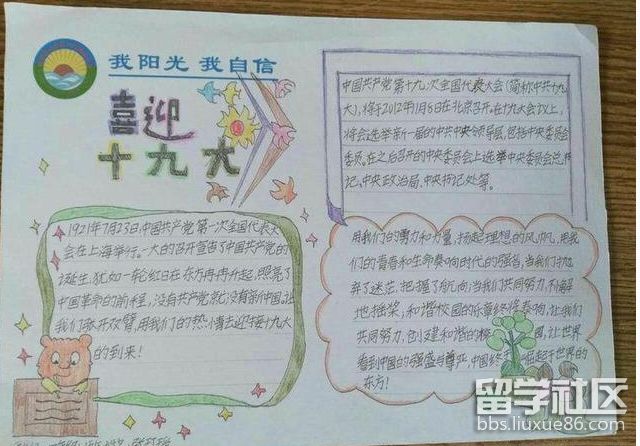 我阳光 我自信
喜迎
十九大
中国共产党第十九次全国代表大会(简称中共十九
大),将于2012年1月8日在北京召开。在十九大会议上,
将会选举新一届的中共中央领导层,包括中央委员会
委员,在之后召开的中央委员会上选举中央委员会总书
记、中央政治局、中央书记处等。
1921年7月23日,中国共产党第一次全国代表大
会在上海举行。一大的召开宣告了中国共产党的
诞生,犹如一轮红日在东方冉冉升起,照亮了
中国革命的前程,没有共产党就没有新中国,让
我们敞开双臂,用我们的热情去迎接十九大
的到来!
用我们的努力和力量,扬起理想的风帆,用我
们的青春和生命奏响时代的强音,当我们抛
弃了迷茫,把握了航向;当我们共同努力,不懈
地摇桨,和谐校园的乐章终将奏响,让我们
共同努力,创建和谐的校园,让世界
看到中国的强盛与尊严,中国终会崛起于世界的
东方!
留学社区
bbs.liuxue86.com